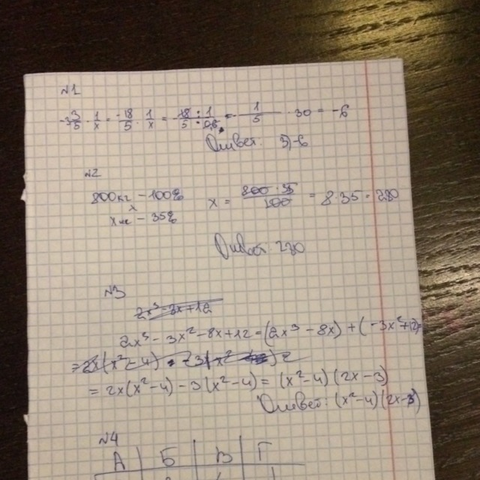 №1
-3 3/5 · 1/x = -18/5 · 1/x = -18/5 : 1/0,6 = -1/5 · 30 = -6
Ответ: 3) -6
№2
800кг - 100%
x кг - 35%
x = 800 · 35 / 100 = 8 · 35 = 280
Ответ 280
№3
2x³ - 3x² - 8x + 12 = (2x³ - 8x) + (-3x² + 12)
= 2x(x² - 4) - 3(x² - 4) = (x² - 4)(2x - 3)
Ответ: (x² - 4)(2x - 3)
№4
А Б В Г